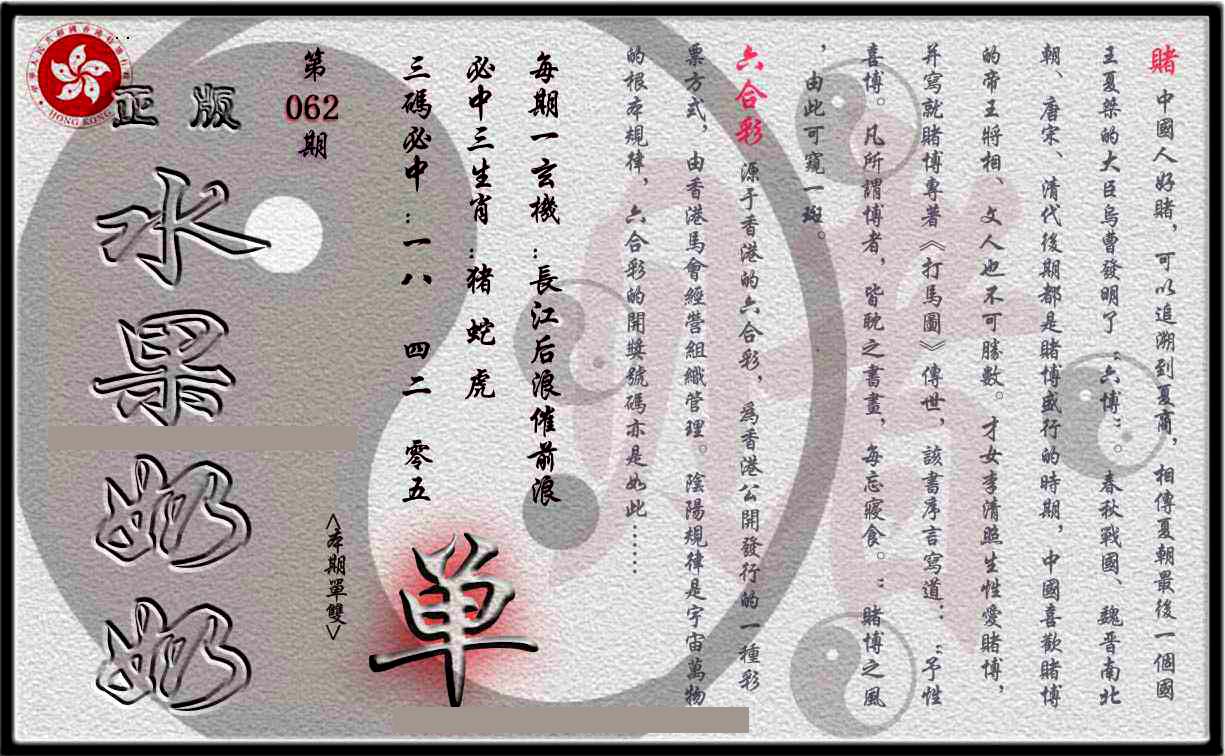 賭 中國人好賭，可以追溯到夏商，相傳夏朝最後一個國
王夏桀的大臣烏曹發明了〝六博〞。春秋戰國、魏晉南北
朝、唐宋、清代後期都是賭博盛行的時期，中國喜歡賭博
的帝王將相、文人也不可勝數。才女李清照生性愛賭博，
并寫就賭博專著《打馬圖》傳世，該書序言寫道：〝予性
喜博。凡所謂博者，皆耽之書畫，每忘寢食。〞賭博之風
，由此可窺一斑。
六合彩 源于香港的六合彩，為香港公開發行的一種彩
票方式，由香港馬會經營組織管理。陰陽規律是宇宙萬物
的根本規律，六合彩的開獎號碼亦是如此……
每期一玄機：長江后浪催前浪
必中三生肖：猪 蛇 虎
三碼必中：一八 四二 零五
单
<本期單雙>
第062期
正版
水果奶奶
HONG KONG